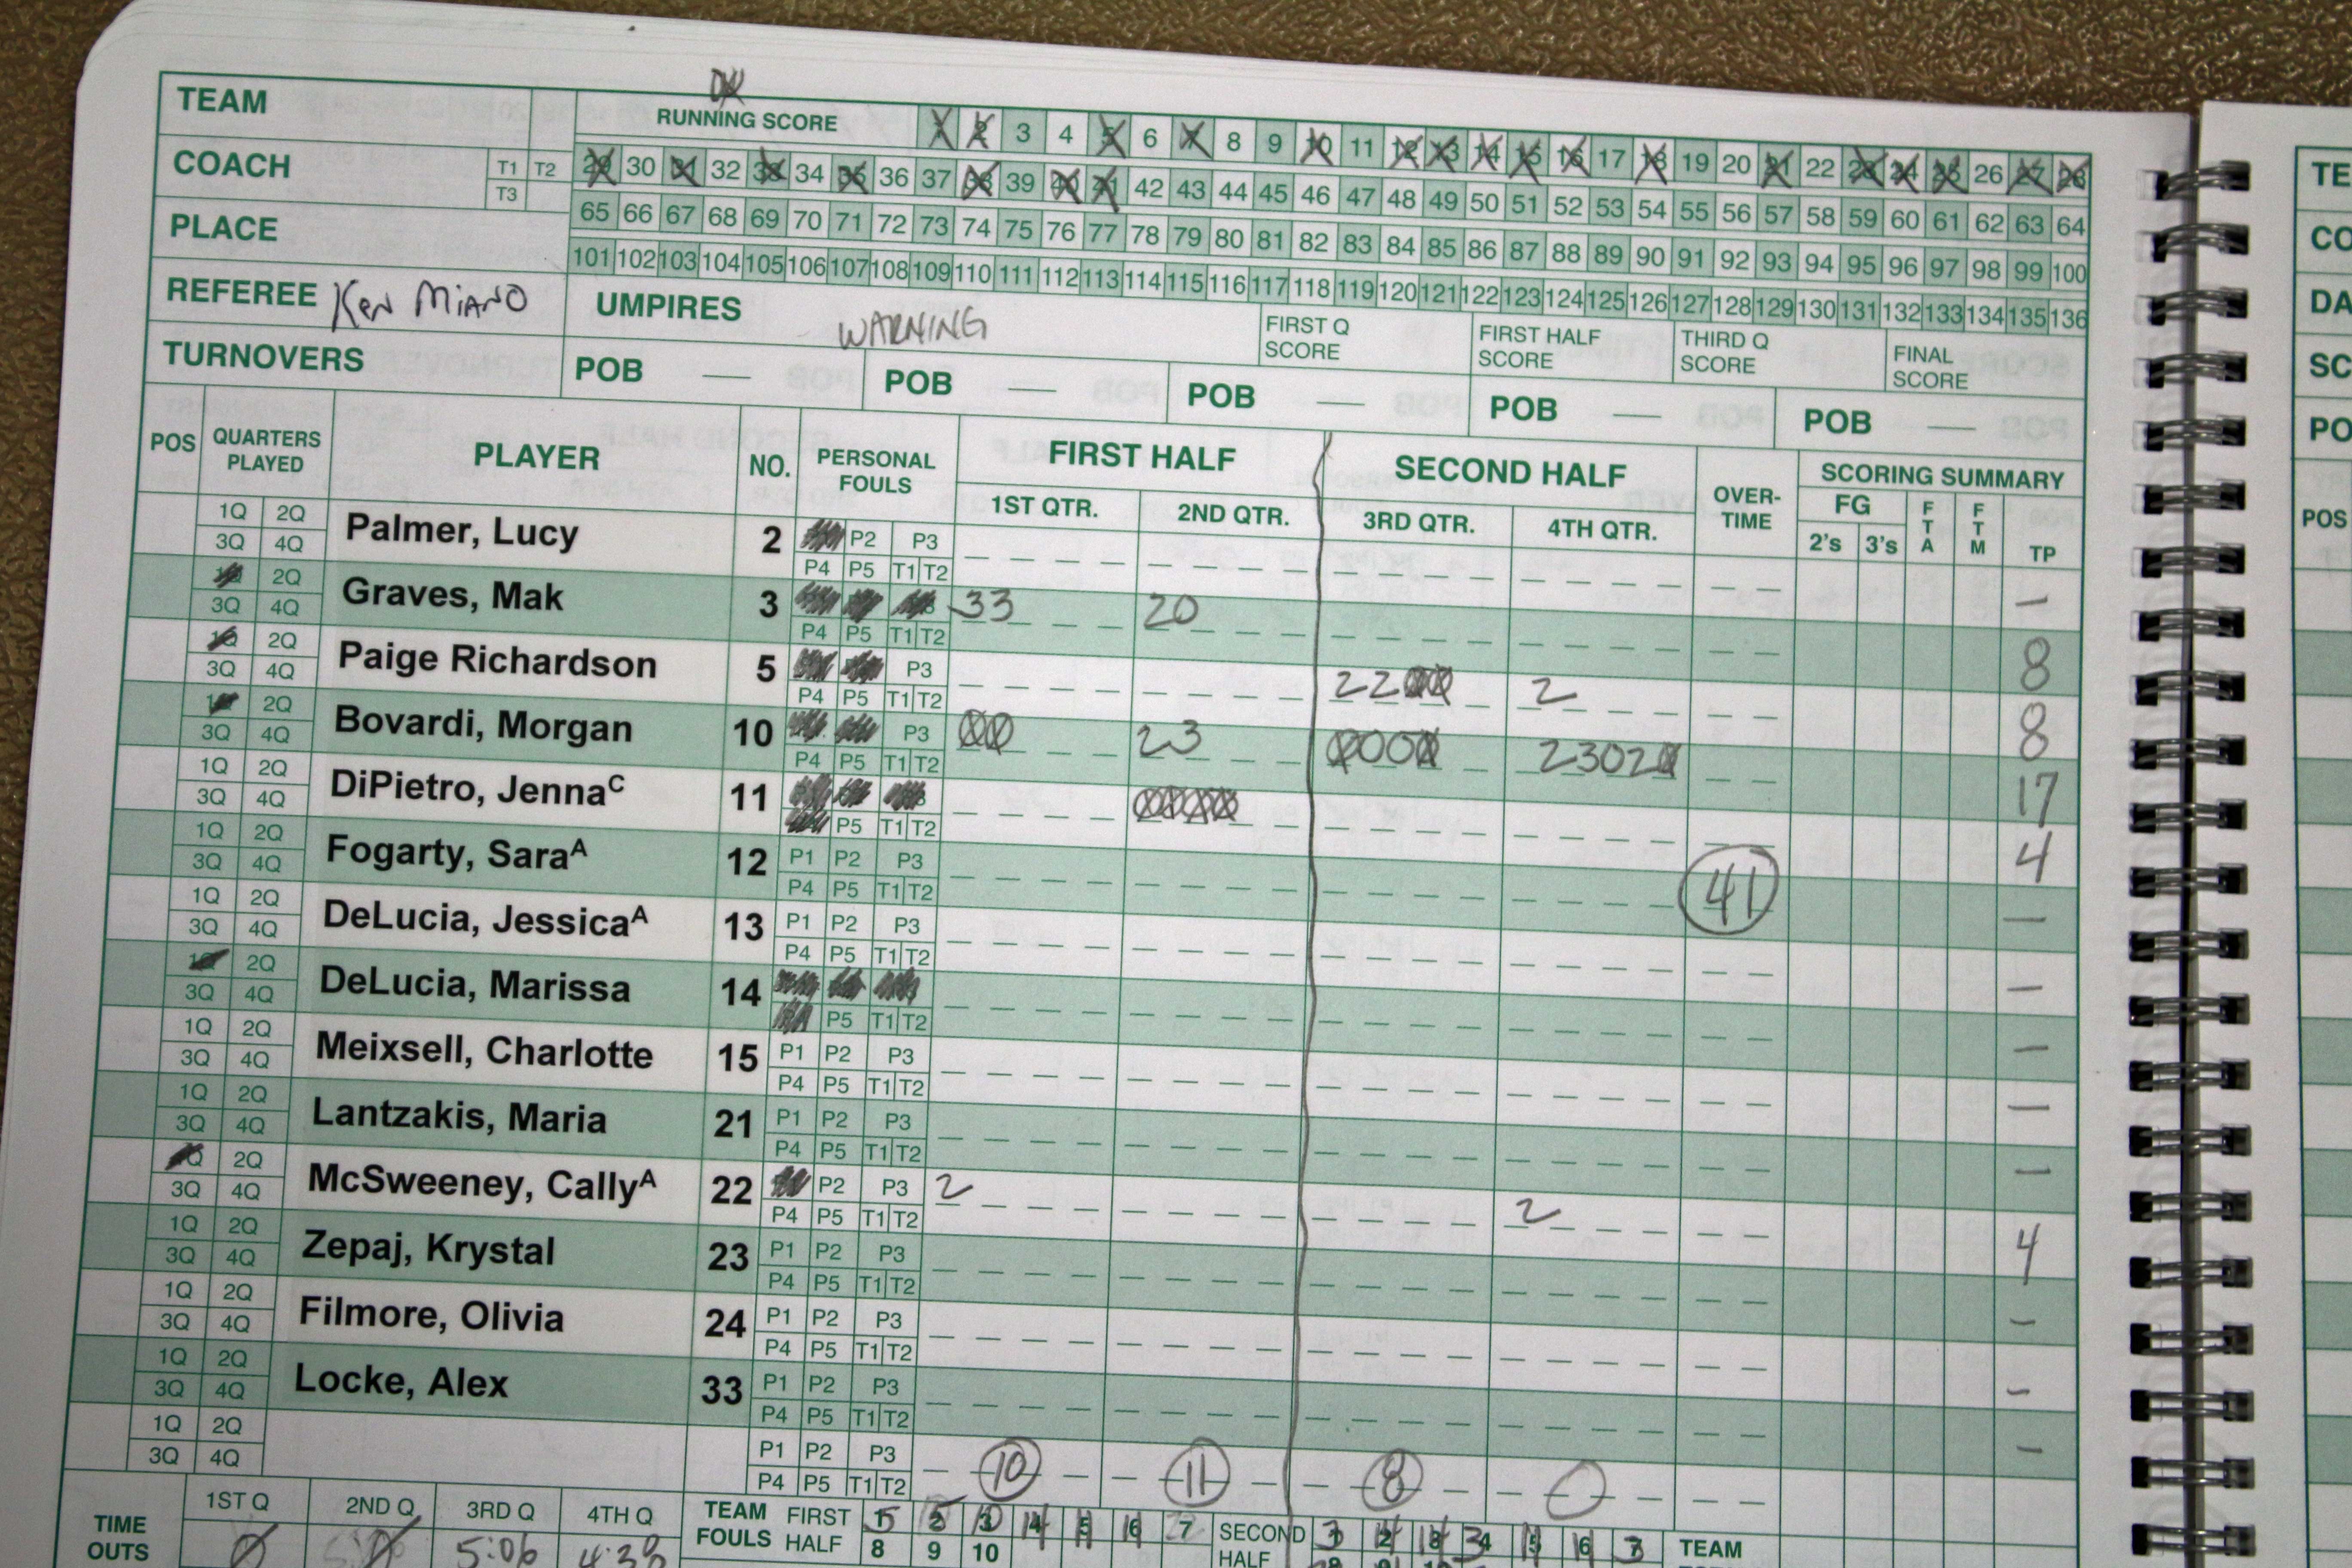 OK
TEAM
RUNNING SCORE
1 2 3 4 5 6 7 8 9 10 11 12 13 14 15 16 17 18 19 20 21 22 23 24 25 26 27 28
COACH
T1 T2
T3
29 30 31 32 33 34 35 36 37 38 39 40 41 42 43 44 45 46 47 48 49 50 51 52 53 54 55 56 57 58 59 60 61 62 63 64
PLACE
65 66 67 68 69 70 71 72 73 74 75 76 77 78 79 80 81 82 83 84 85 86 87 88 89 90 91 92 93 94 95 96 97 98 99 100
101 102 103 104 105 106 107 108 109 110 111 112 113 114 115 116 117 118 119 120 121 122 123 124 125 126 127 128 129 130 131 132 133 134 135 136
REFEREE Ken Miano
UMPIRES
WARNING
FIRST Q SCORE
FIRST HALF SCORE
THIRD Q SCORE
FINAL SCORE
TURNOVERS
POB — POB — POB — POB — POB —
POS
QUARTERS PLAYED
PLAYER
NO.
PERSONAL FOULS
FIRST HALF
1ST QTR. 2ND QTR.
SECOND HALF
3RD QTR. 4TH QTR.
OVER-TIME
SCORING SUMMARY
FG
2's 3's
FTA
FTM
TP
1Q 2Q Palmer, Lucy 2 P2 P3
3Q 4Q P4 P5 T1 T2 —
2Q Graves, Mak 3 33 20
3Q 4Q P4 P5 T1 T2 8
1Q 2Q Paige Richardson 5 P3 22 2
3Q 4Q P4 P5 T1 T2 8
2Q Bovardi, Morgan 10 P3 23 2302
3Q 4Q P4 P5 T1 T2 17
1Q 2Q DiPietro, Jenna C 11
3Q 4Q P5 T1 T2 4
1Q 2Q Fogarty, Sara A 12 P1 P2 P3 41
3Q 4Q P4 P5 T1 T2 —
1Q 2Q DeLucia, Jessica A 13 P1 P2 P3
3Q 4Q P4 P5 T1 T2 —
2Q DeLucia, Marissa 14
3Q 4Q P5 T1 T2 —
1Q 2Q Meixsell, Charlotte 15 P1 P2 P3
3Q 4Q P4 P5 T1 T2 —
1Q 2Q Lantzakis, Maria 21 P1 P2 P3
3Q 4Q P4 P5 T1 T2 —
2Q McSweeney, Cally A 22 P2 P3 2 2
3Q 4Q P4 P5 T1 T2 4
1Q 2Q Zepaj, Krystal 23 P1 P2 P3
3Q 4Q P4 P5 T1 T2 -
1Q 2Q Filmore, Olivia 24 P1 P2 P3
3Q 4Q P4 P5 T1 T2 -
1Q 2Q Locke, Alex 33 P1 P2 P3
3Q 4Q P4 P5 T1 T2 -
1Q 2Q P1 P2 P3 10 11 8
3Q 4Q P4 P5 T1 T2
TIME OUTS
1ST Q 2ND Q 3RD Q 4TH Q
5:06 4:38
TEAM FOULS
FIRST HALF
1 2 3 4 5 6 7
8 9 10
SECOND HALF
1 2 3 4 5 6 7
TEAM
TE
CO
DA
SC
PO
POS